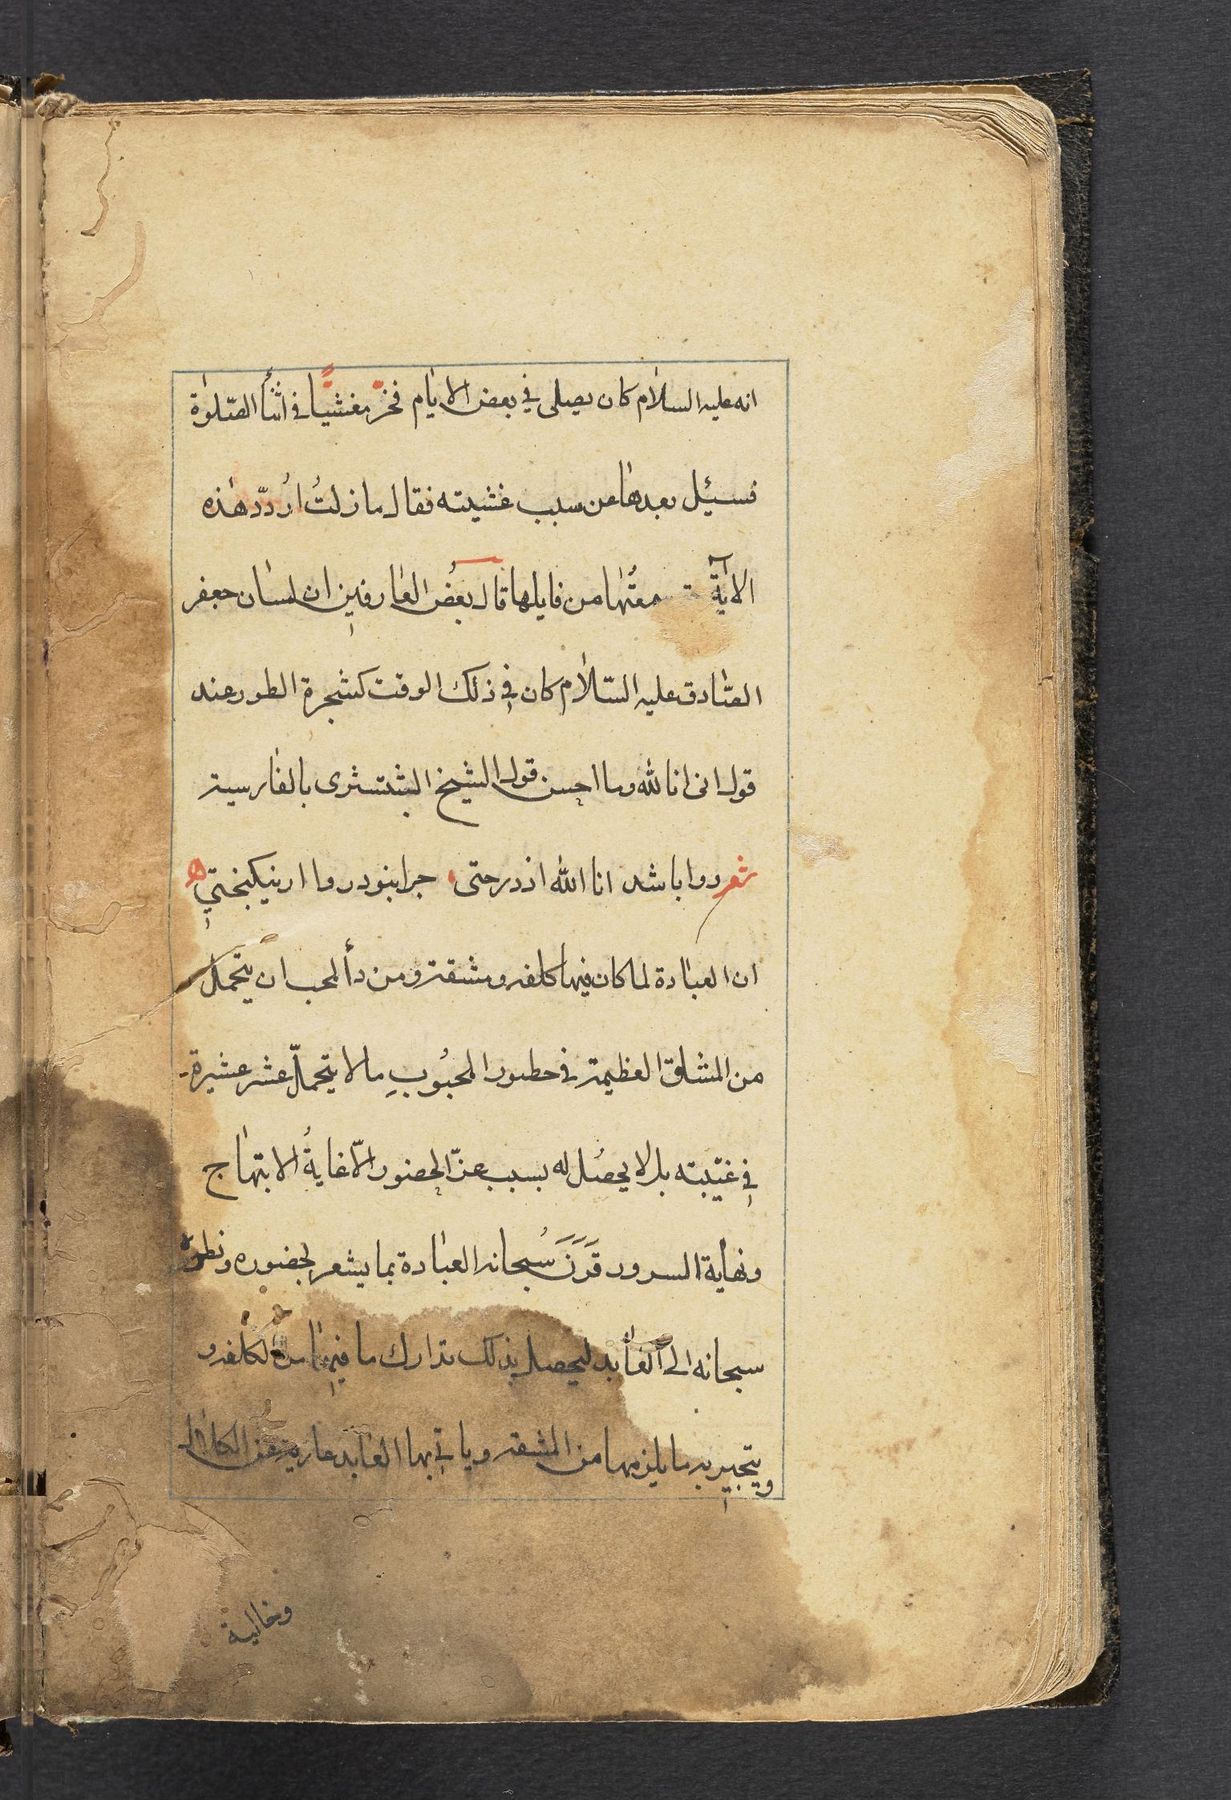 انه عليه السلام كان يصلى في بعض الايّام فخرّ مغشيًّا في اثنأ الصّلوٰة
فسيئل بعدها من سبب غشيته فقال ما زلتُ اُردّد هذه
الاٰية معتُها من قايلها قال بعضُ العارفين ان لسان جعفر
الصّادق عليه السّلام كان في ذلك الوقت كشجرة الطور عند
قول انى انا لله وما احسن قول الشيخ الشتسترى بالفارسية
شعر روا باشد انا الله از درختى، جرا نبود روا از نيكبختي
ان العبادة لما كان فيها كلفة ومشقة ومن دأ المحب ان يتحمل
من المشاق العظيمة في حطور المحبُوبِ ما لا يتحمّل عشر عشيرة
في غيبته بل لا يحصُل له بسبب عزّ الحضور الّا غايةُ الابتهاج
ونهاية السرور قَرَنَ سُبحانه العبادة بما يشعر بحضوره ونظره
سبحانه الى العابد ليحصل بذلك تدارك ما فيها من الكلفة و
ويتجبر به ما يلزمها من المشقة وياتي بها العابد عارية عن الكلال
وخالية